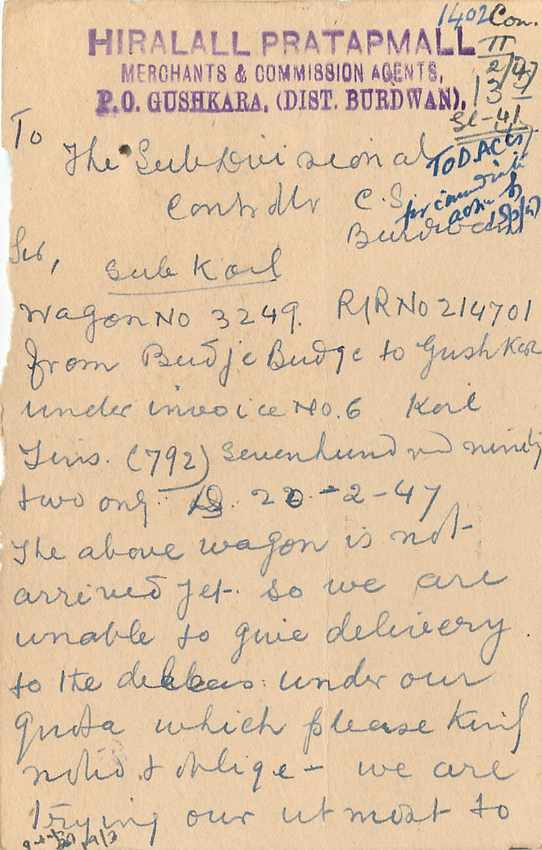 1402 Con.
HIRALALL PRATAPMALL
II
MERCHANTS & COMMISSION AGENTS,
2/47
P.O. GUSHKARA, (DIST. BURDWAN).
13
Sl-41
To
The Subdivisional
TO DACS
Controller C.S.
for
Burdwan
Sir,
Sub Koil
Wagon No 3249. R/R No 214701
from Budje Budge to Gushkar
under invoice No. 6 Koil
Tins. (792) Sevenhund nd ninty
two only. D. 20-2-47
The above wagon is not
arrived yet. So we are
unable to give delivery
to the delears under our
quota which please kind
notid & oblige - we are
trying our utmost to